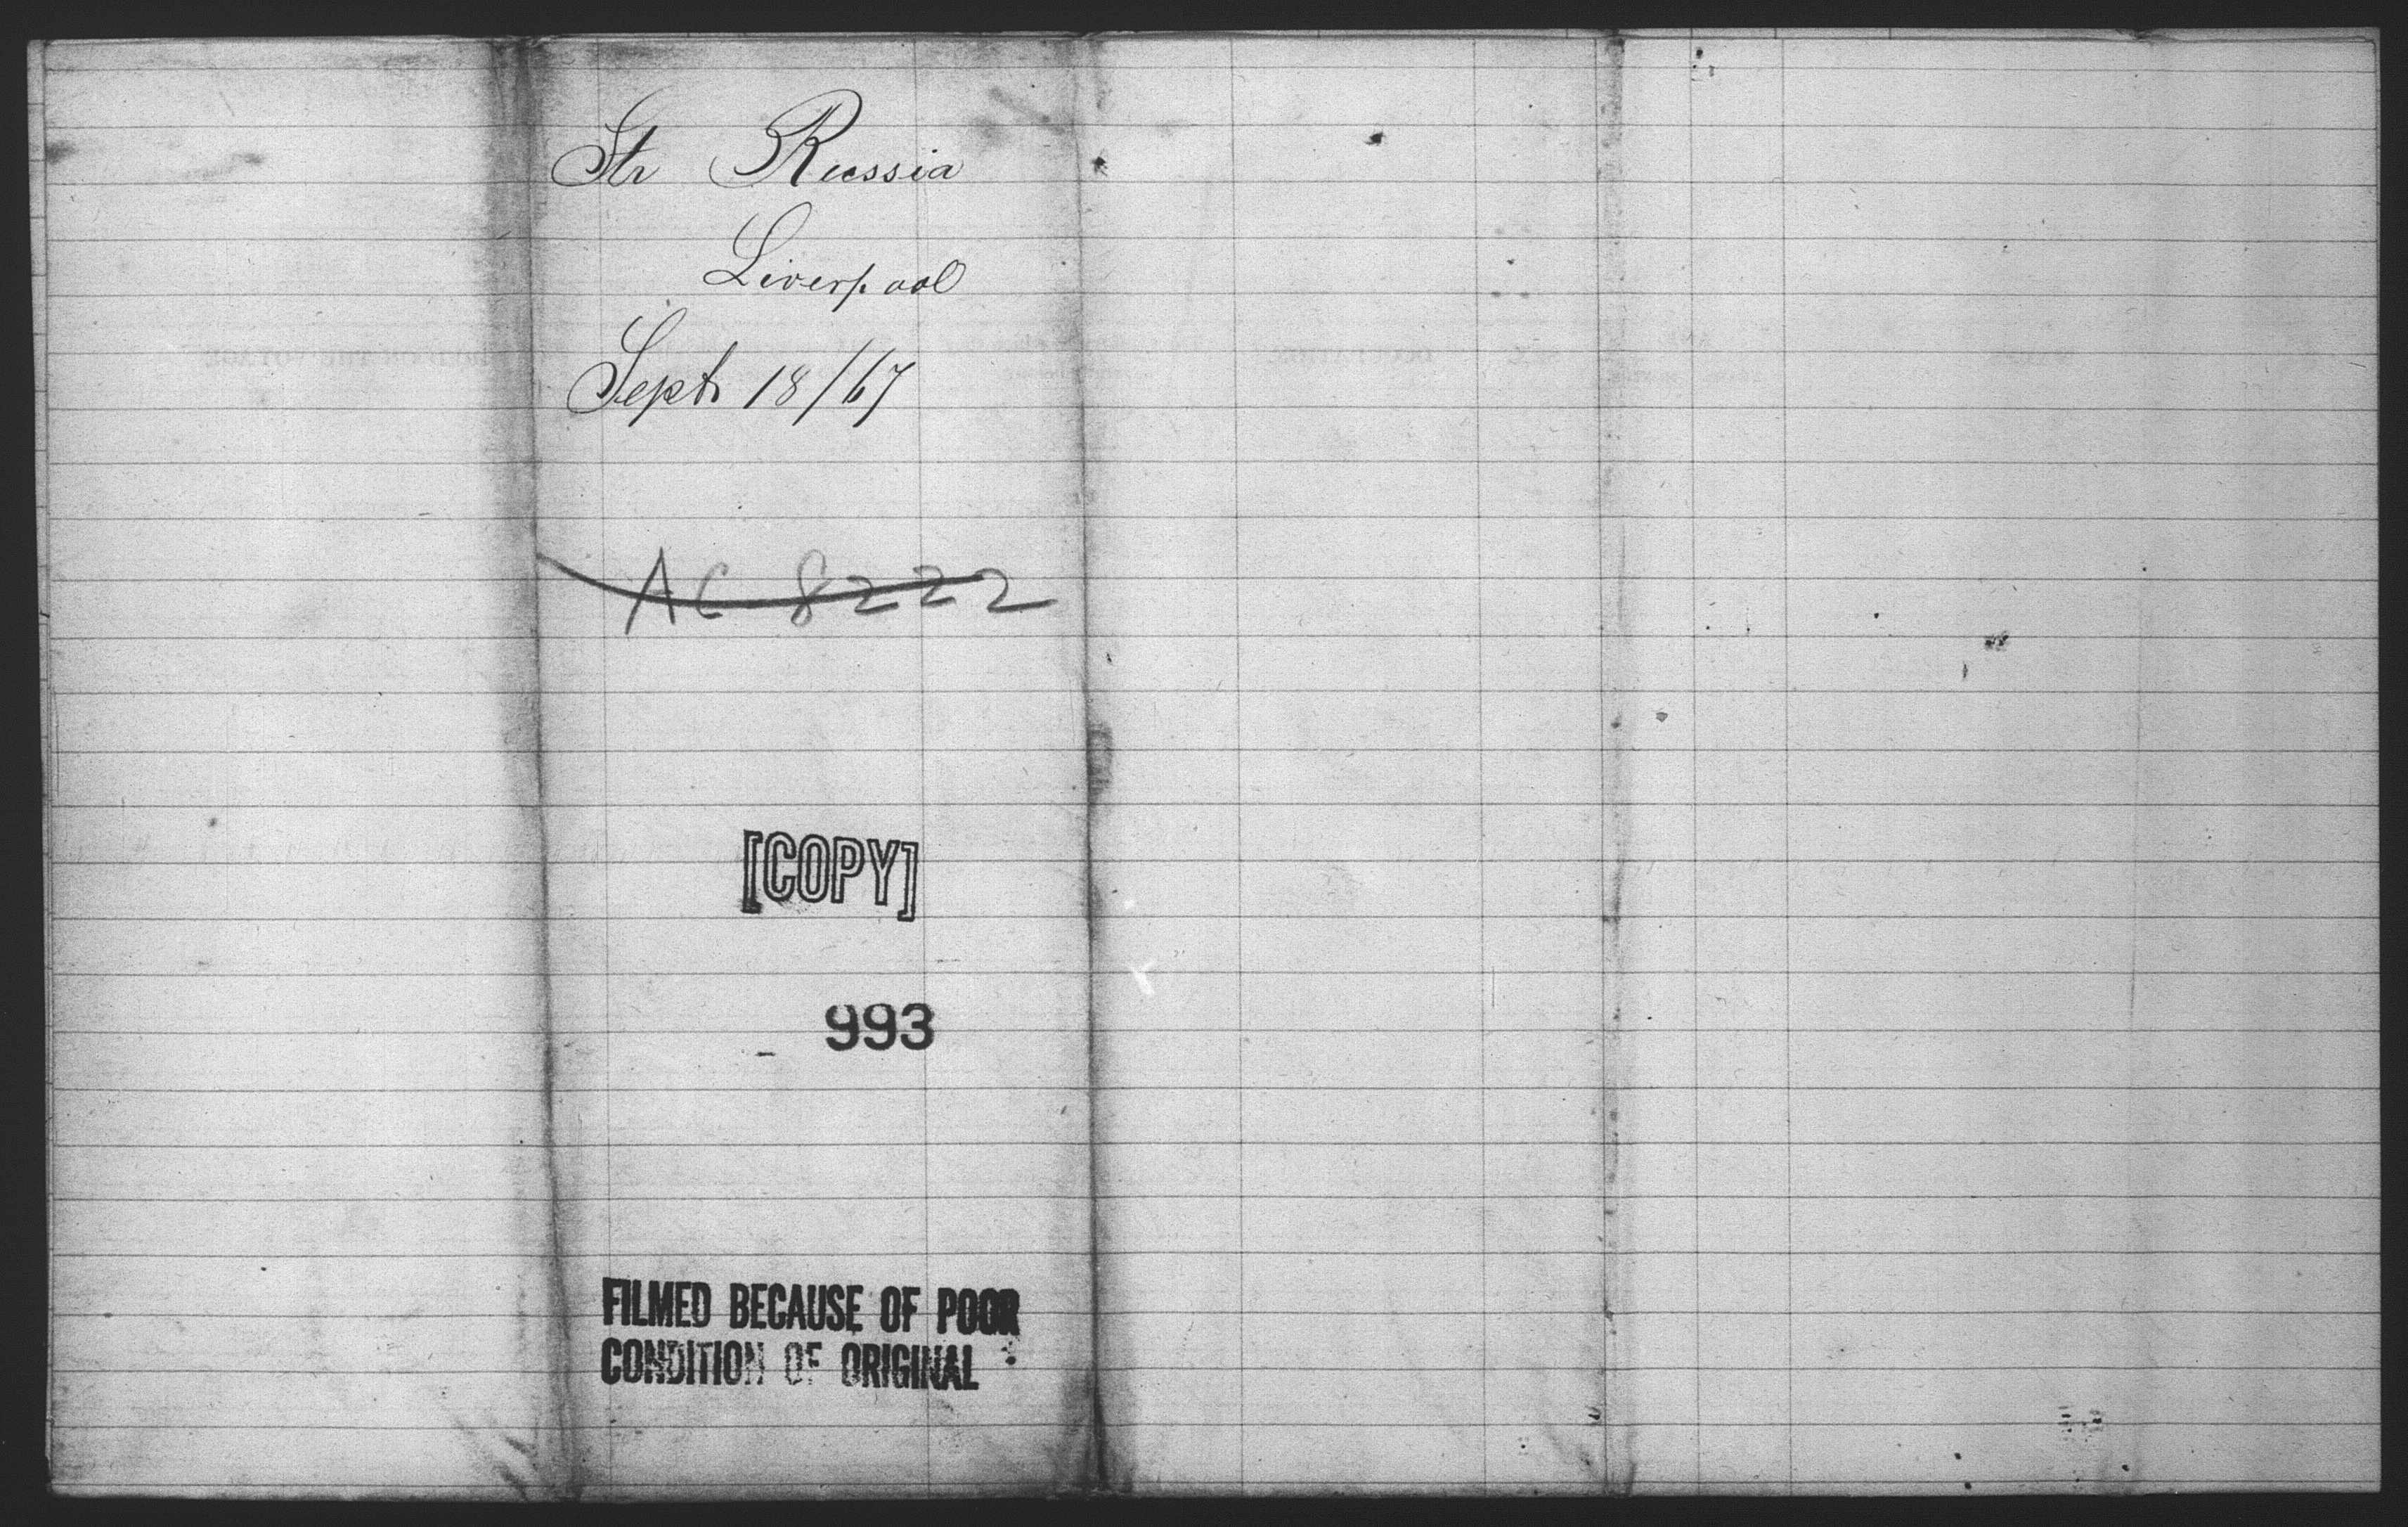 Str Russia
Liverpool
Sept 18/67
AC 8222
[COPY]
993
FILMED BECAUSE OF POOR
CONDITION OF ORIGINAL